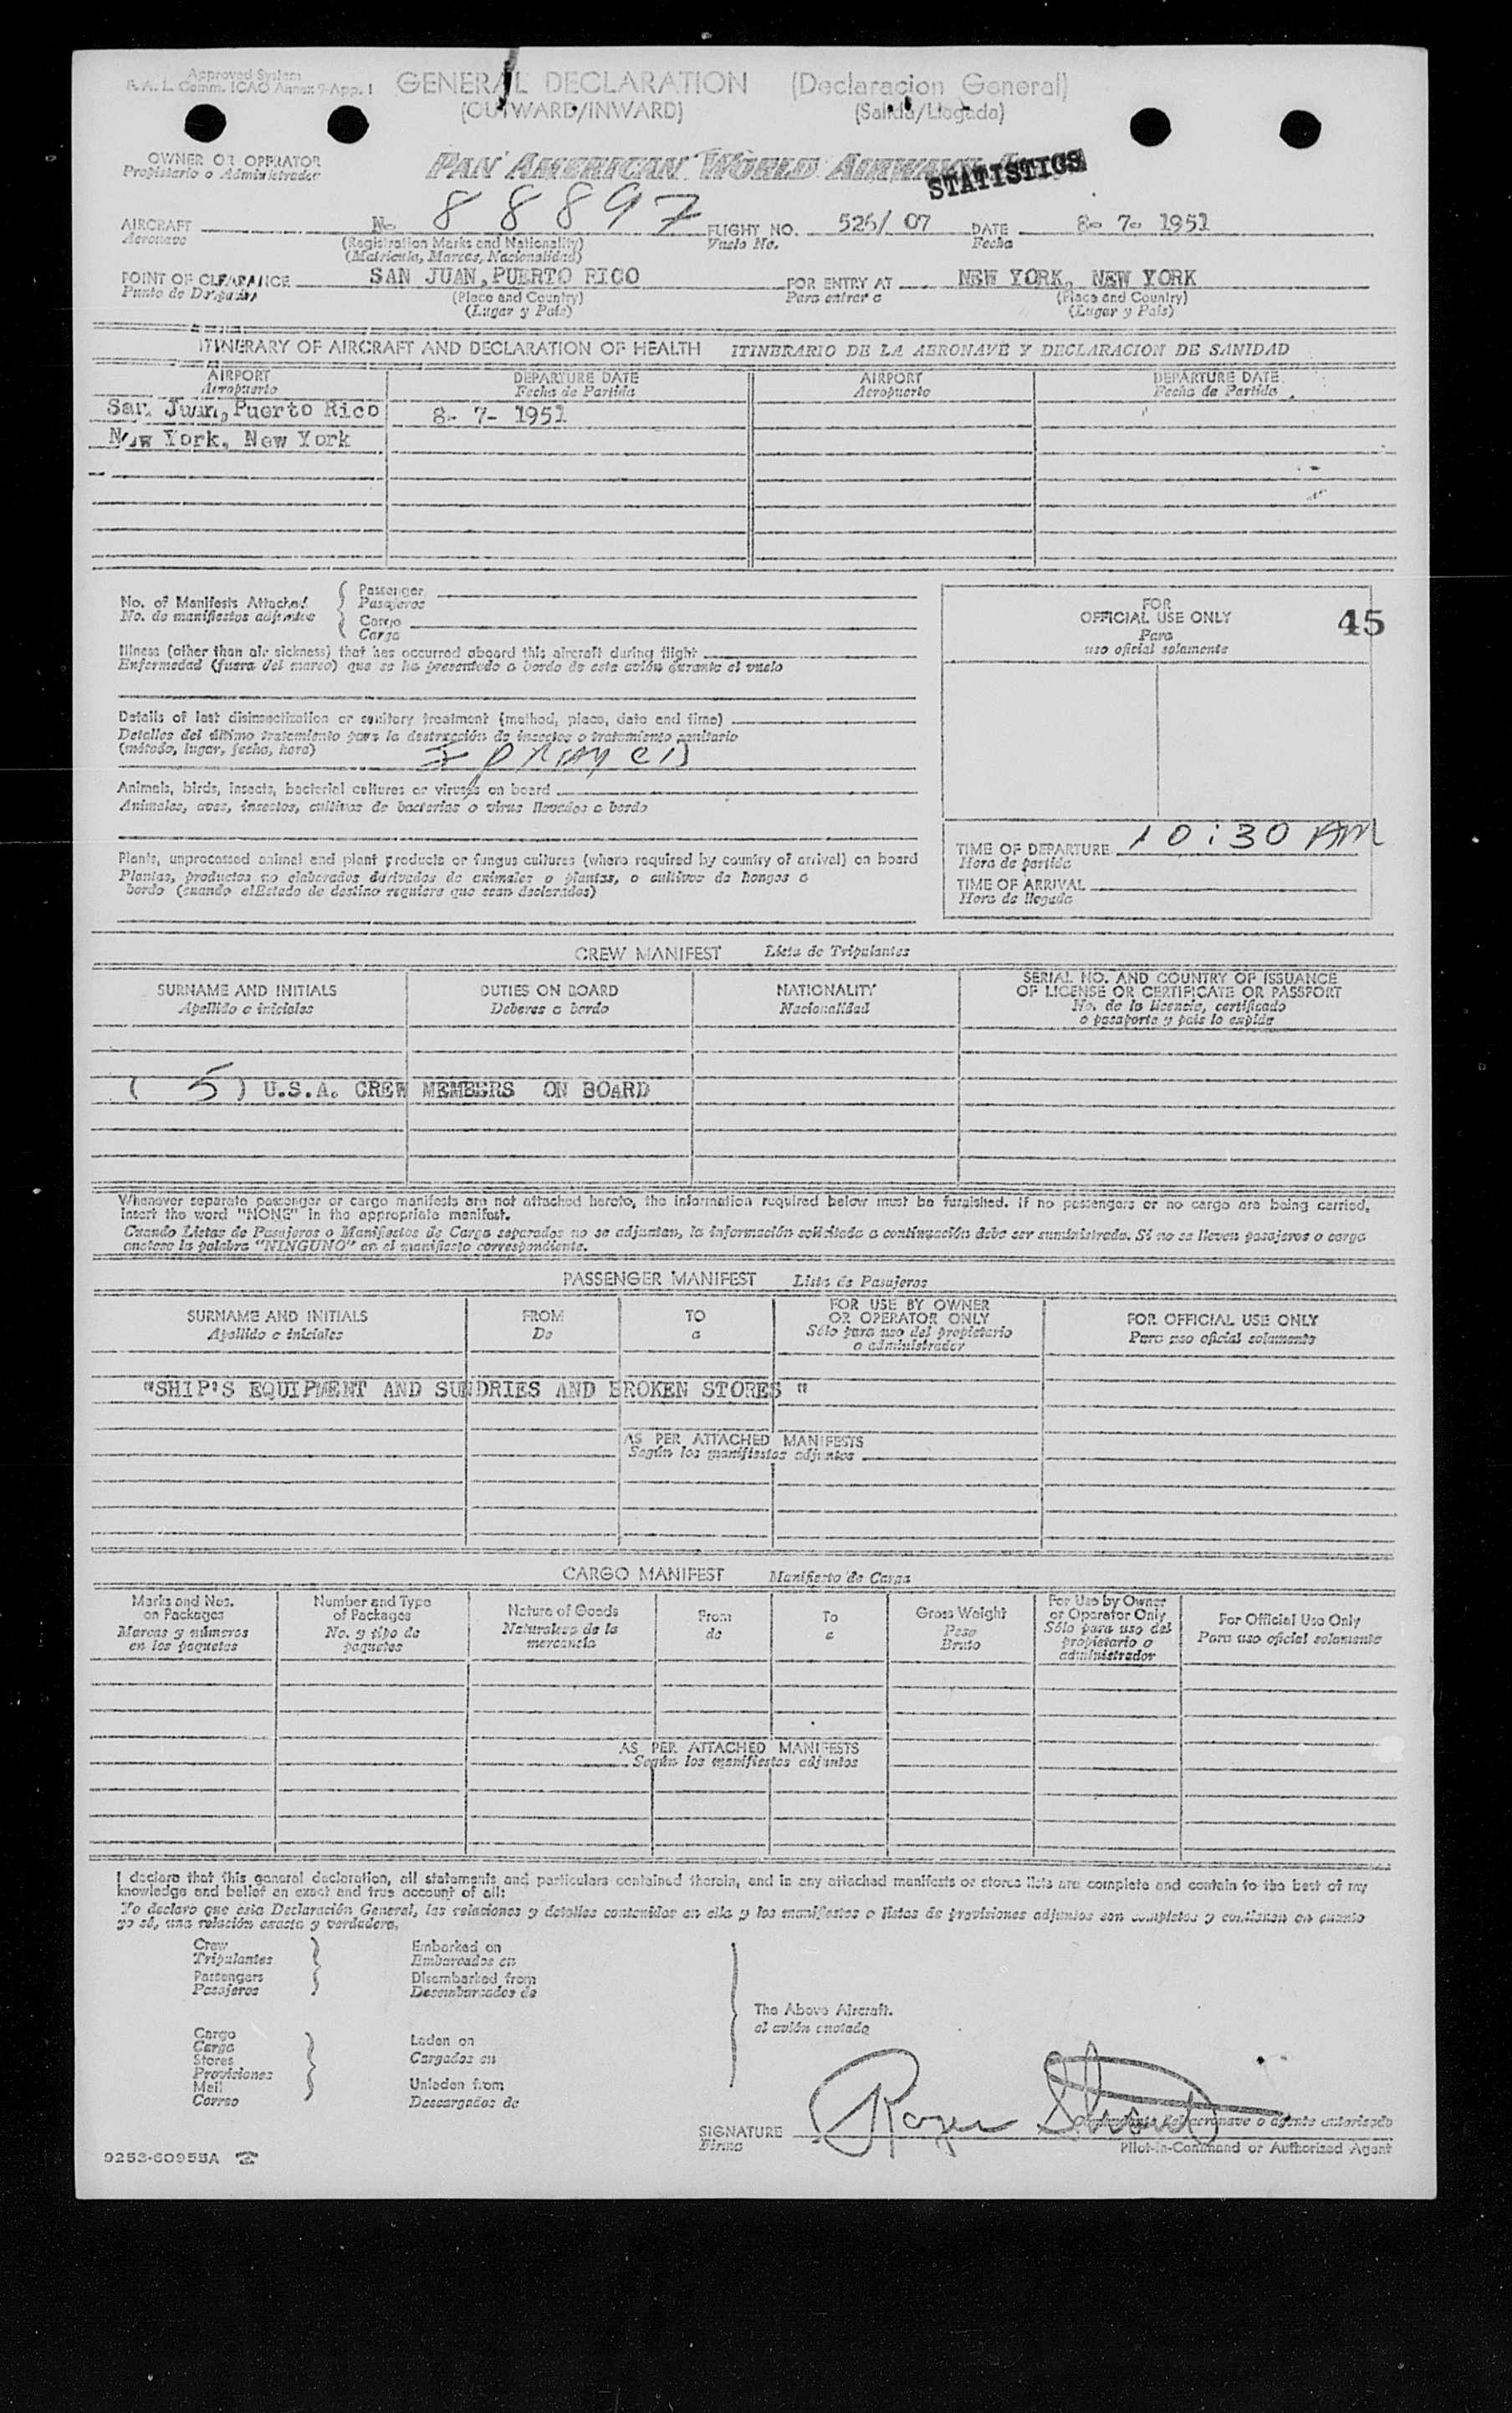 Approved System
P.A.L. Comm. ICAO Annex 9-App. 1
GENERAL DECLARATION (Declaracion General)
(OUTWARD/INWARD) (Salida/Llegada)
OWNER OR OPERATOR
Propietario o Administrador
PAN AMERICAN WORLD AIRWAYS
STATISTICS
AIRCRAFT N- 88897 FLIGHT NO. 526/ 07 DATE 8- 7- 1951
Aeronave (Registration Marks and Nationality) Vuelo No. Fecha
(Matricula, Marcas, Nacionalidad)
POINT OF CLEARANCE SAN JUAN,PUERTO RICO FOR ENTRY AT NEW YORK, NEW YORK
Punto de Despacho (Place and Country) Para entrar a (Place and Country)
(Lugar y País) (Lugar y País)
ITINERARY OF AIRCRAFT AND DECLARATION OF HEALTH ITINERARIO DE LA AERONAVE Y DECLARACION DE SANIDAD
AIRPORT DEPARTURE DATE AIRPORT DEPARTURE DATE
Aeropuerto Fecha de Partida Aeropuerto Fecha de Partida
San Juan,Puerto Rico 8- 7- 1951
New York, New York
No. of Manifests Attached
No. de manifiestos adjuntos
Passenger
Pasajeros
Cargo
Carga
FOR
OFFICIAL USE ONLY
Para
uso oficial solamente
45
Illness (other than air sickness) that has occurred aboard this aircraft during flight
Enfermedad (fuera del mareo) que se ha presentado a bordo de este avión durante el vuelo
Details of last disinsectization or sanitary treatment (method, place, date and time)
Detalles del último tratamiento para la destrucción de insectos o tratamiento sanitario
(método, lugar, fecha, hora)
Animals, birds, insects, bacterial cultures or viruses on board
Animales, aves, insectos, cultivos de bacterias o virus llevados a bordo
Plants, unprocessed animal and plant products or fungus cultures (where required by country of arrival) on board
Plantas, productos no elaborados derivados de animales o plantas, o cultivos de hongos a
bordo (cuando elEstado de destino requiere que sean declarados)
TIME OF DEPARTURE 10:30 AM
Hora de partida
TIME OF ARRIVAL
Hora de llegada
CREW MANIFEST Lista de Tripulantes
SURNAME AND INITIALS DUTIES ON BOARD NATIONALITY SERIAL NO. AND COUNTRY OF ISSUANCE
OF LICENSE OR CERTIFICATE OR PASSPORT
Apellido e iniciales Deberes a bordo Nacionalidad No. de la licencia, certificado
o pasaporte y pais lo expide
( 5 ) U.S.A. CREW MEMBERS ON BOARD
Whenever separate passenger or cargo manifests are not attached hereto, the information required below must be furnished. If no passengers or no cargo are being carried,
insert the word "NONE" in the appropriate manifest.
Cuando Listas de Pasajeros o Manifiestos de Carga separados no se adjuntan, la información solicitada a continuación debe ser suministrada. Si no se llevan pasajeros o carga
anotese la palabra "NINGUNO" en el manifiesto correspondiente.
PASSENGER MANIFEST Lista de Pasajeros
SURNAME AND INITIALS FROM TO FOR USE BY OWNER
OR OPERATOR ONLY FOR OFFICIAL USE ONLY
Apellido e iniciales De a Sólo para uso del propietario
o administrador Para uso oficial solamente
"SHIP'S EQUIPMENT AND SUNDRIES AND BROKEN STORES "
AS PER ATTACHED MANIFESTS
Según los manifiestos adjuntos
CARGO MANIFEST Manifiesto de Carga
Marks and Nos.
on Packages
Marcas y números
en los paquetes
Number and Type
of Packages
No. y tipo de
paquetes
Nature of Goods
Naturaleza de la
mercancia
From
de
To
a
Gross Weight
Peso
Bruto
For Use by Owner
or Operator Only
Sólo para uso del
propietario o
administrador
For Official Use Only
Para uso oficial solamente
AS PER ATTACHED MANIFESTS
Según los manifiestos adjuntos
I declare that this general declaration, all statements and particulars contained therein, and in any attached manifests or stores lists are complete and contain to the best of my
knowledge and belief an exact and true account of all:
Yo declaro que esta Declaración General, las relaciones y detalles contenidos en ella y los manifiestos o listas de provisiones adjuntos son completos y contienen en cuanto
yo sé, una relación exacta y verdadera.
Crew
Tripulantes
Passengers
Pasajeros
Embarked on
Embarcados en
Disembarked from
Desembarcados de
Cargo
Carga
Stores
Provisiones
Mail
Correo
Laden on
Cargados en
Unladen from
Descargados de
The Above Aircraft.
el avión anotado
SIGNATURE
Firma
Comandante del aeronave o agente autorizado
Pilot-in-Command or Authorized Agent
9253-60955A